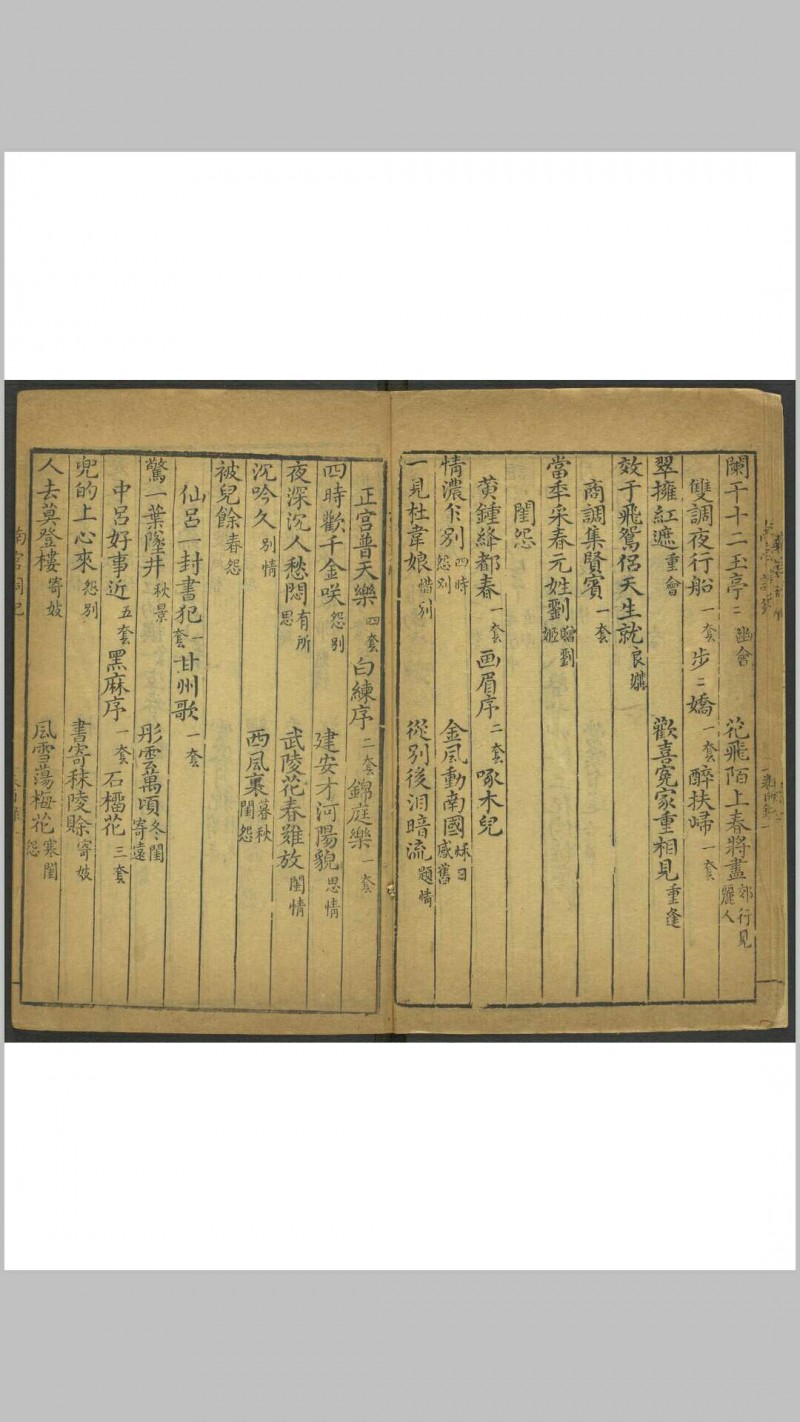 闌干十二玉亭二幽會　花飛陌上春將盡郊行見麗人
雙調夜行船一套步二嬌一套醉扶歸一套
翠擁紅遮重會　歡喜冤家重相見重逢
效于飛鴛侶天生就良姻
商調集賢賓一套
當年采春元姓劉贈劉姬
閨怨
黄鍾絳都春一套画眉序二套啄木兒
情濃乍別四時怨別　金風動南國秋日感舊
一見杜韋娘惜別　從別後淚暗流題情
正宮普天樂四套白練序二套錦庭樂一套
四時歡千金咲怨別　建安才河陽貌思情
夜深沉人愁悶有所思　武陵花春難放閨情
沉吟久別情　西風裹暮秋閨怨
被兒餘春怨
仙呂一封書犯一套甘州歌一套
驚一葉墜井秋景　彤雲萬頃冬閨寄遠
中呂好事近五套黑麻序一套石榴花三套
兜的上心來怨別　書寄秣陵賒寄妓
人去莫登樓寄妓　風雪蕩梅花寒閨怨
南宮詞紀